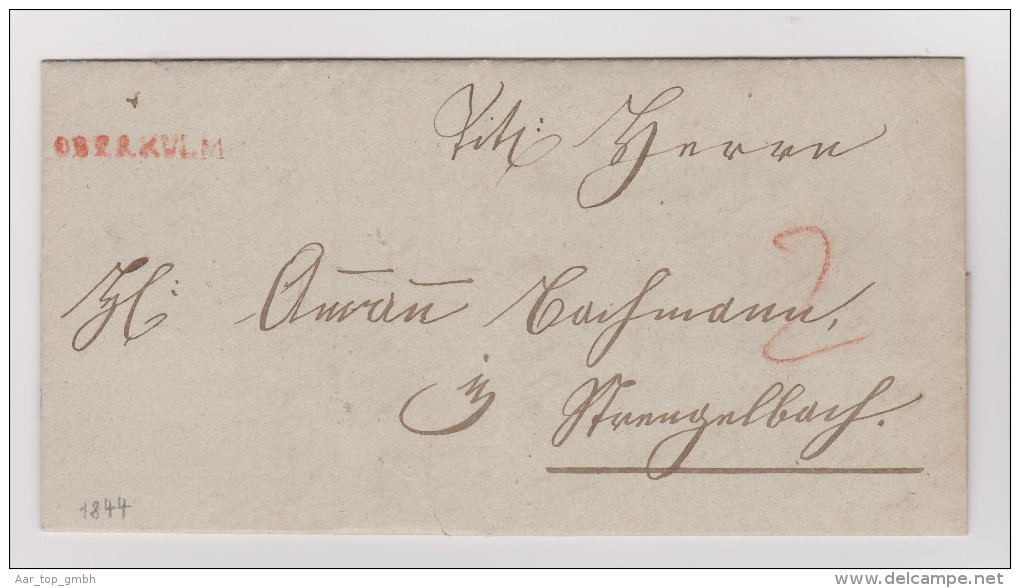 OBERKULM
Tit: Herrn
Hl: Amān̄ Bachmann,
in Strengelbach.
2
1844
Aar_top_gmbh
delcampe.net